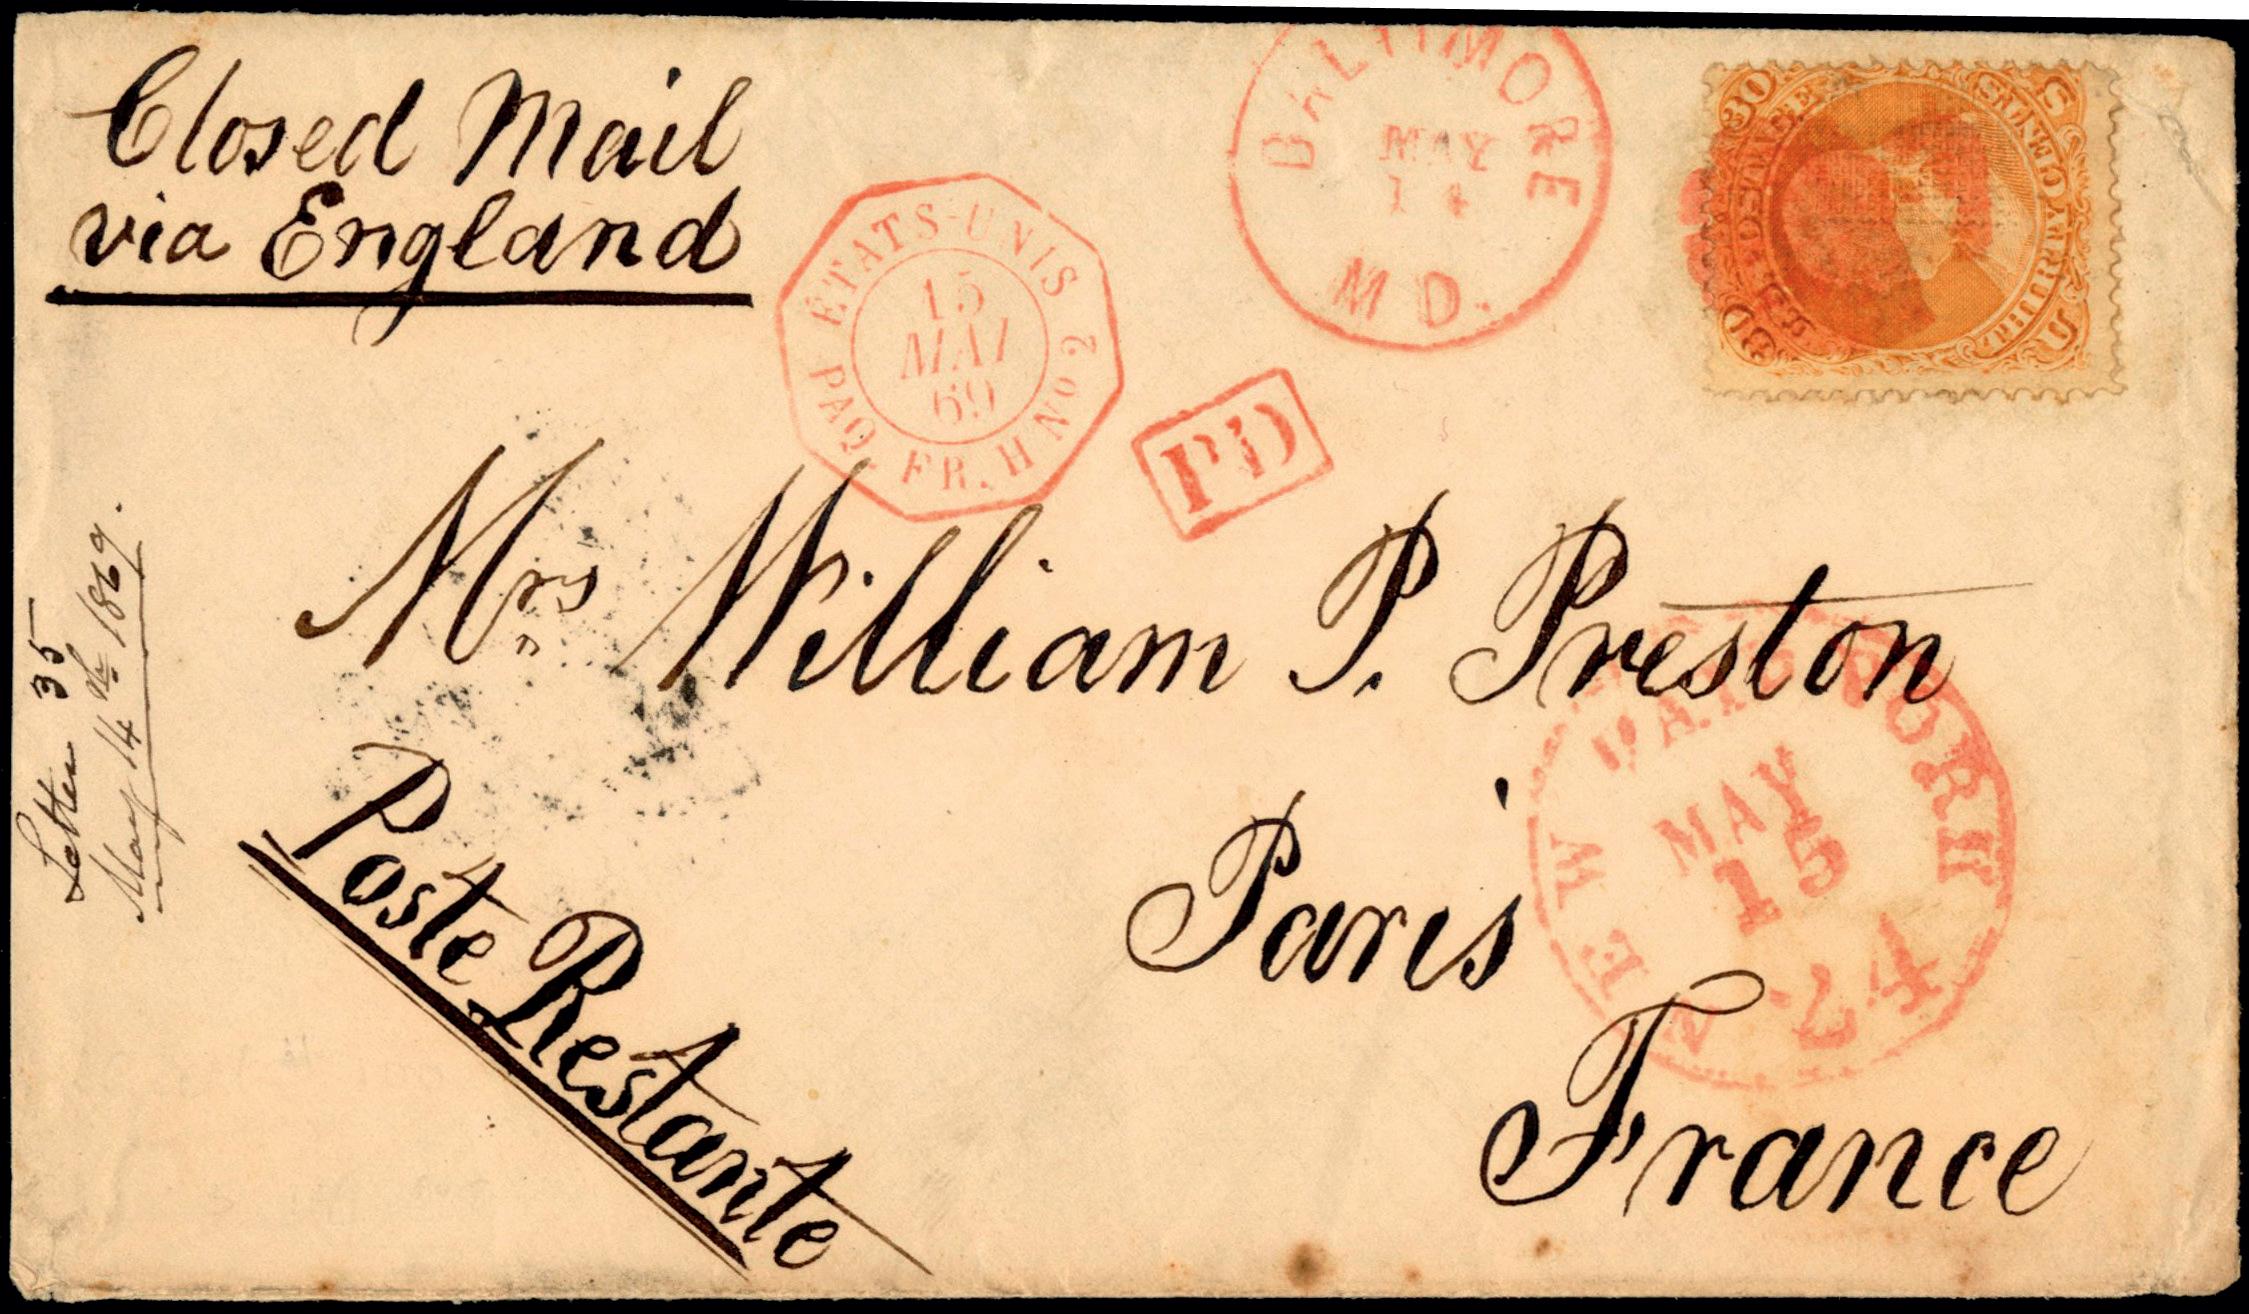 Closed Mail
via England
BALTIMORE
MAY
14
MD.
ÉTATS-UNIS
15
MAI
69
PAQ. FR. H No 2
PD
30
U.S. POSTAGE
THIRTY CENTS
U S
Letter 35
May 14th 1869.
Mrs William P. Preston
Paris
France
Poste Restante
NEW PAID YORK
MAY
15
24